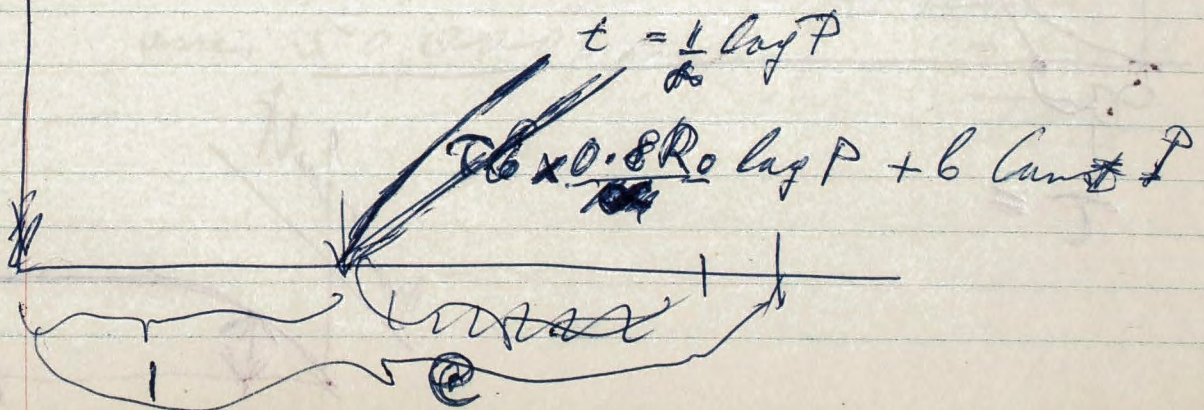 t = 1/α log P
τ6 x 0.8R₀ log P + 6 Const P
1
C